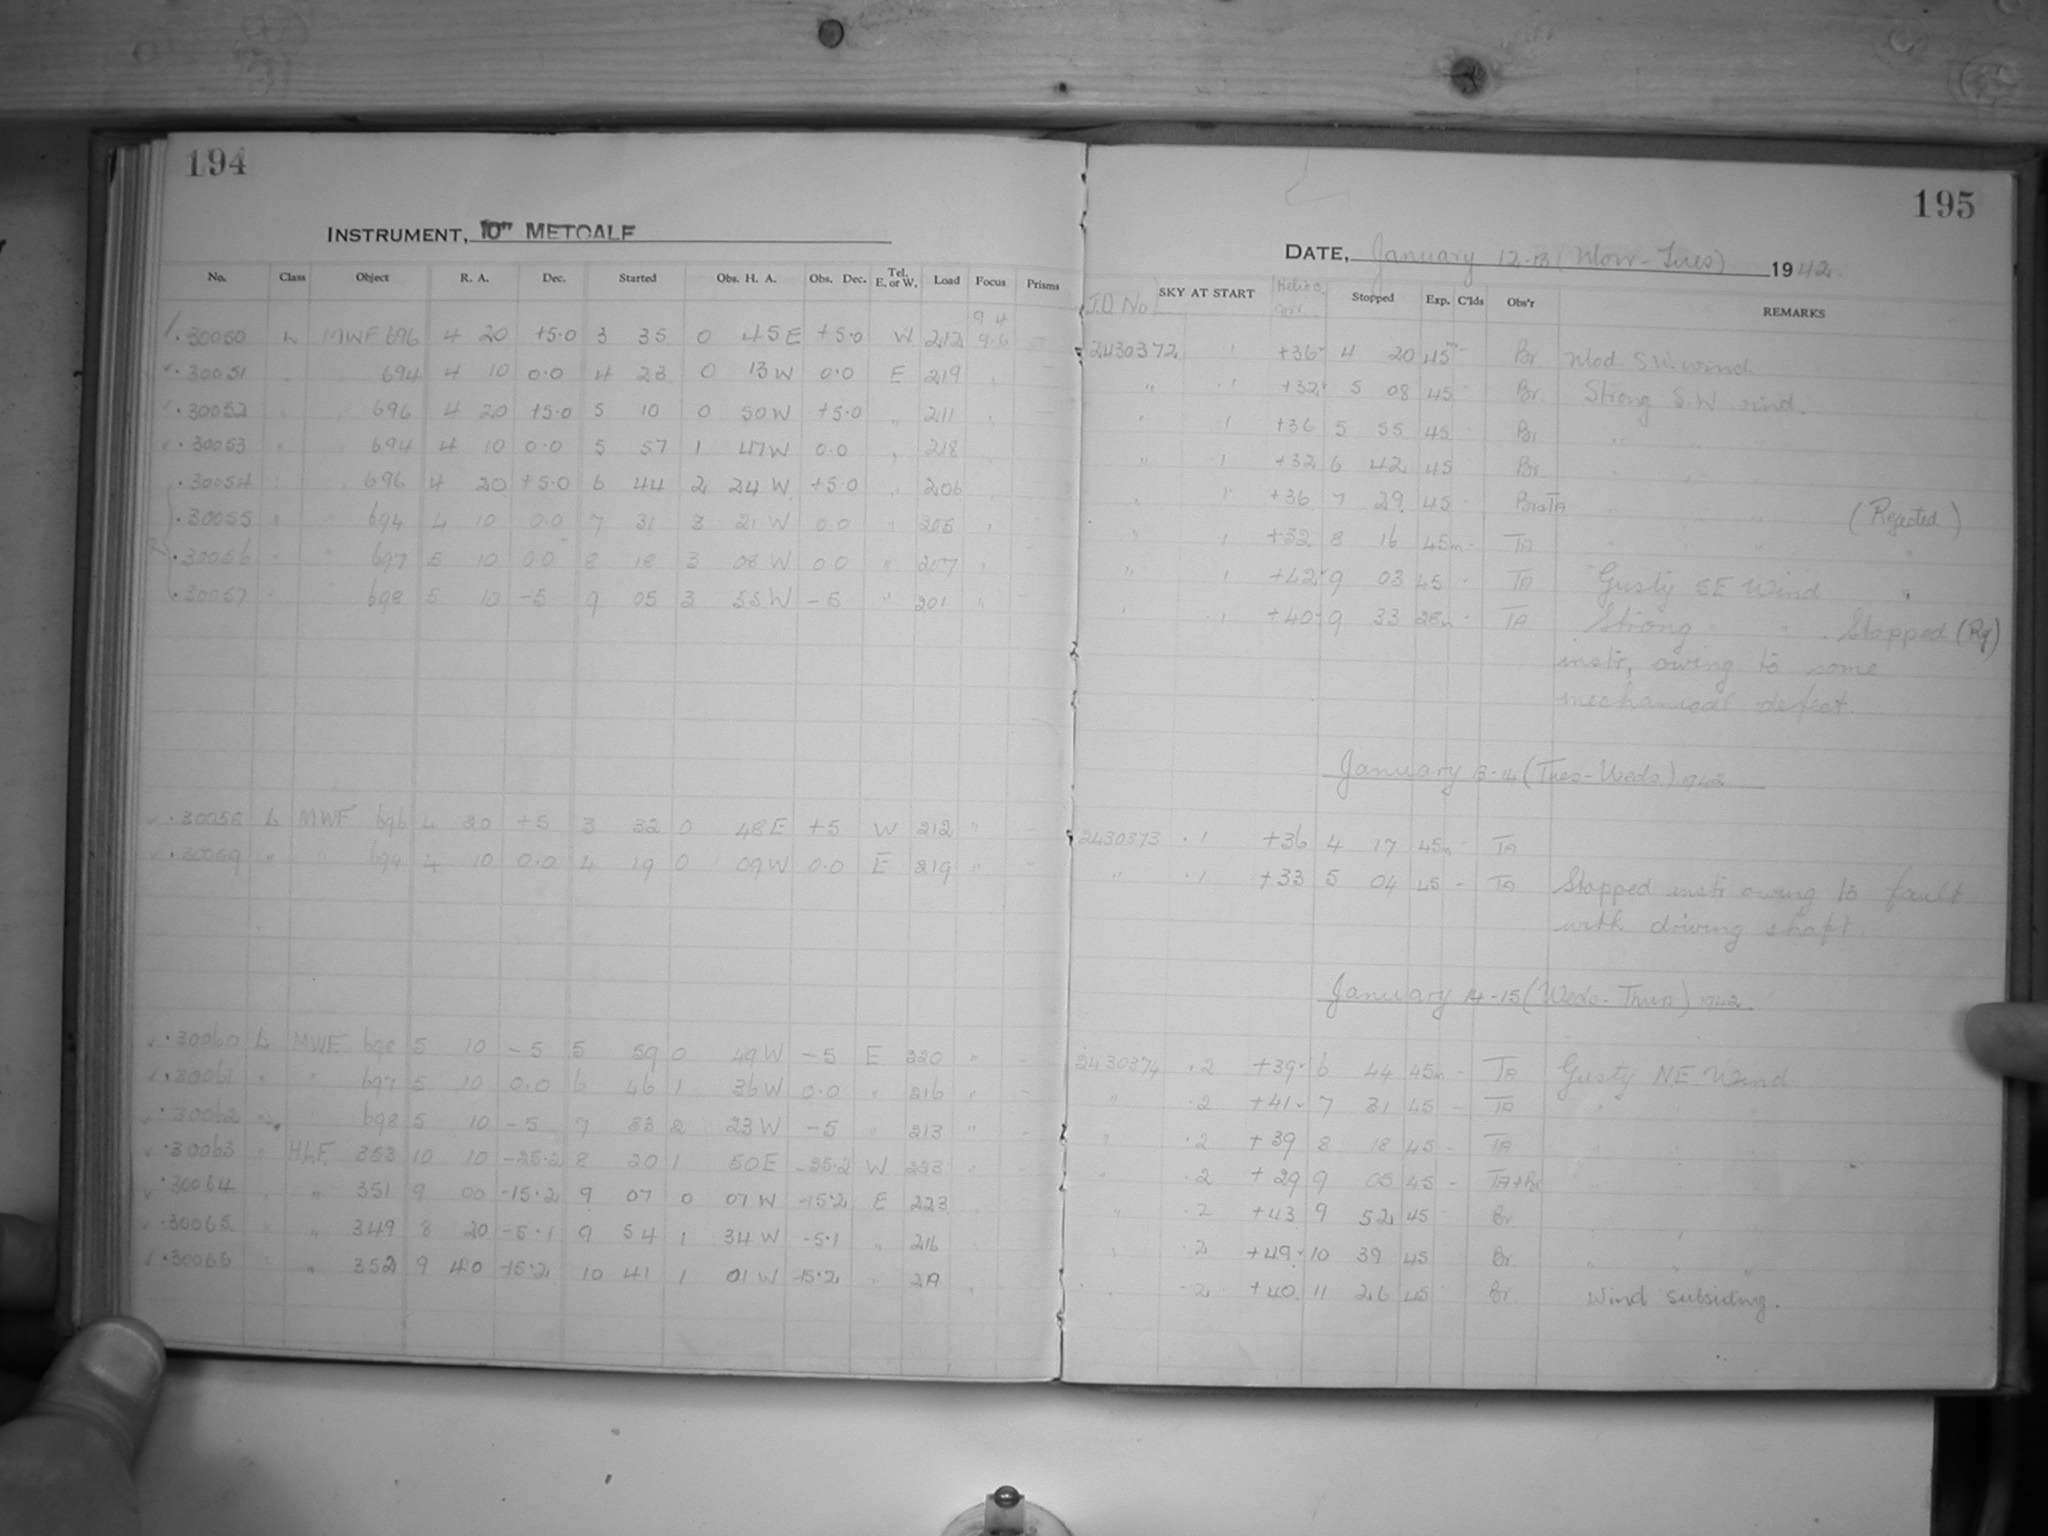 194
INSTRUMENT, 10" METCALF
No. Class Object R. A. Dec. Started Obs. H. A. Obs. Dec. Tel. E. or W. Load Focus Prisms
9.4
30050 L MWF 696 4 20 +5.0 3 35 0 45 E +5.0 W 212 9.6 -
30051 " " 694 4 10 0.0 4 23 0 13 W 0.0 E 219 " -
30052 " " 696 4 20 +5.0 5 10 0 50 W +5.0 " 211 " -
30053 " " 694 4 10 0.0 5 57 1 47 W 0.0 " 218 "
30054 " " 696 4 20 +5.0 6 44 2 24 W +5.0 " 206 "
30055 " " 694 4 10 0.0 7 31 3 21 W 0.0 " 205 "
30056 " " 697 5 10 0.0 8 18 3 08 W 0.0 " 207 "
30057 " " 698 5 10 -5 9 05 3 55 W -5 " 201 "
30058 L MWF 696 4 20 +5 3 32 0 48 E +5 W 212 " -
30059 " " 694 4 10 0.0 4 19 0 09 W 0.0 E 219 " -
30060 L MWF 698 5 10 -5 5 59 0 49 W -5 E 220 " -
30061 " " 697 5 10 0.0 6 46 1 36 W 0.0 " 216 " -
30062 " " 698 5 10 -5 7 33 2 23 W -5 " 213 " -
30063 " HLF 353 10 10 -25.2 8 20 1 50 E -25.2 W 223 "
30064 " " 351 9 00 -15.2 9 07 0 07 W -15.2 E 223
30065 " " 349 8 20 -5.1 9 54 1 34 W -5.1 " 216
30066 " " 352 9 40 -15.2 10 41 1 01 W -15.2 " 219
195
DATE, January 12-13 (Mon-Tues) 1942
J.D. No. SKY AT START Helioc. Corr. Stopped Exp. C'lds Obs'r REMARKS
2430372 .1 +36 4 20 45m Br. Mod. S.W. wind
" .1 +32 5 08 45 Br. Strong S.W. wind.
" .1 +36 5 55 45 Br. " " "
" .1 +32 6 42 45 Br. " " "
" .1 +36 7 29 45 Br&TA " " " (Rejected)
" .1 +32 8 16 45m - TA " " " "
" .1 +42 9 03 45 - TA Gusty SE Wind "
" .1 +40 9 33 28m - TA Strong " " . Stopped (Rj)
instr, owing to some
mechanical defect.
January 13-14 (Tues-Weds) 1942
2430373 .1 +36 4 17 45m - TA
" .1 +33 5 04 45 - TA Stopped instr owing to fault
with driving shaft.
January 14-15 (Weds-Thurs) 1942
2430374 .2 +39 6 44 45m - TA Gusty NE Wind
" .2 +41 7 31 45 - TA " " "
" .2 +39 8 18 45 - TA " " "
" .2 +29 9 05 45 - TA+Br " " "
" .2 +43 9 52 45 Br. " " "
" .2 +49 10 39 45 Br. " " "
" .2 +40 11 26 45 Br. Wind subsiding.